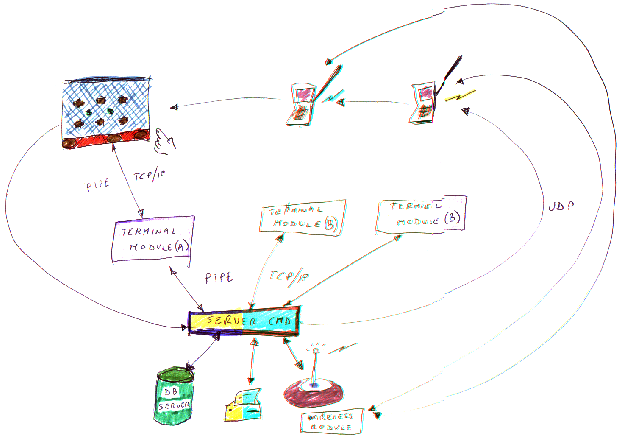 PIPE
TCP/IP
TERMINAL
MODULE (A)
TERMINAL
MODULE (B)
TERMINAL
MODULE (B)
UDP
PIPE
TCP/IP
SERVER CMD
DB
SERVER
WIRELESS
MODULE